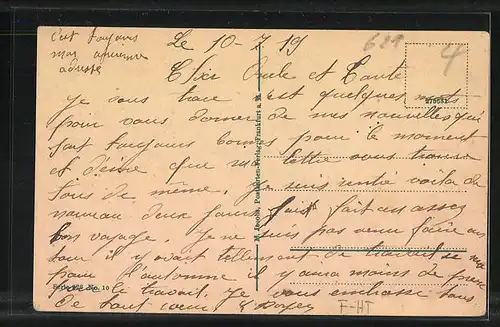 c'est toujours
mon ancienne
adresse
Le 10-7 19
621
4
Cher Oncle et Tante
275531
Je vous trace c'est quelques mots
pour vous donner de mes nouvelles qui
sont toujours bonnes pour le moment
et désire que ma lettre vous trouve
tous de même. Je suis rentré voila de
nouveau deux jours fait assez
bon voyage. Je ne suis pas venu faire un
tour il y avait tellement de travail
pour l'automne il y aura moins de
le travail. Je vous embrasse tous
de tout coeur
F-HT
M. Jacobs, Postkarten-Verlag, Frankfurt a. M.
Serie No. 10